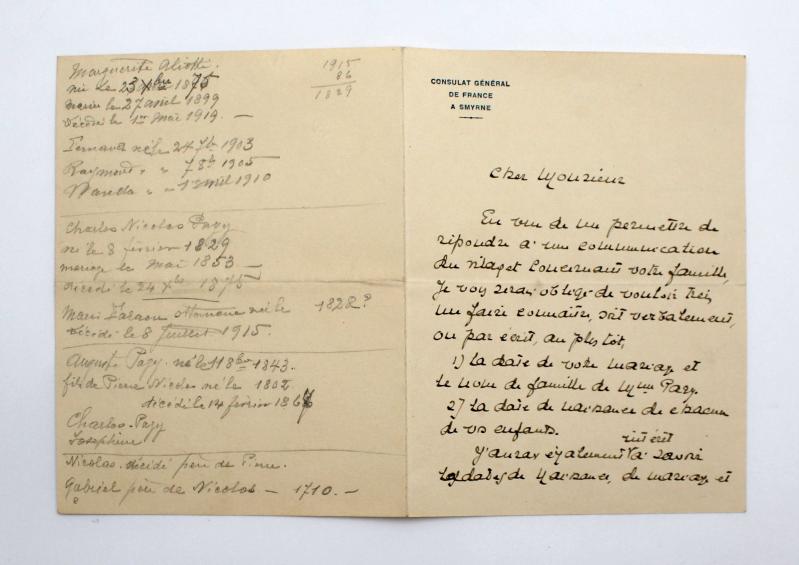 Marguerite Aliotti.
née le 23 Xbre 1875
mariée le 27 avril 1899
décédé le 1er Mai 1919. —
1915
86
1829
Fernand né le 24 7b 1903
Raymond " " 7 8b 1905
" " 1 avril 1910
Charles Nicolas Pagy
né le 8 février 1829
mariage le Mai 1853 —
décédé le 24 Xbre 1875
Marie ottomane né le 1828?
décédé le 8 Juillet 1915.
Auguste Pagy. né le 11 8bre 1843.
fils de Pierre Nicolas né le 1802
décédé le 14 février 1867
Charles Pagy
Joséphine
Nicolas décédé père de Pierre.
Gabriel père de Nicolas — 1710. —
CONSULAT GÉNÉRAL
DE FRANCE
A SMYRNE
Cher Monsieur
En vue de me permettre de
répondre à une communication
du concernant votre famille,
je vous serais obligé de vouloir bien
me faire connaître, soit verbalement,
ou par écrit, au plus tôt,
1) la date de votre mariage et
le nom de famille de Mme Pagy.
2) la date de naissance de chacun
de vos enfants.
intérêt
J'aurais également à savoir
les dates de naissance, de mariage et